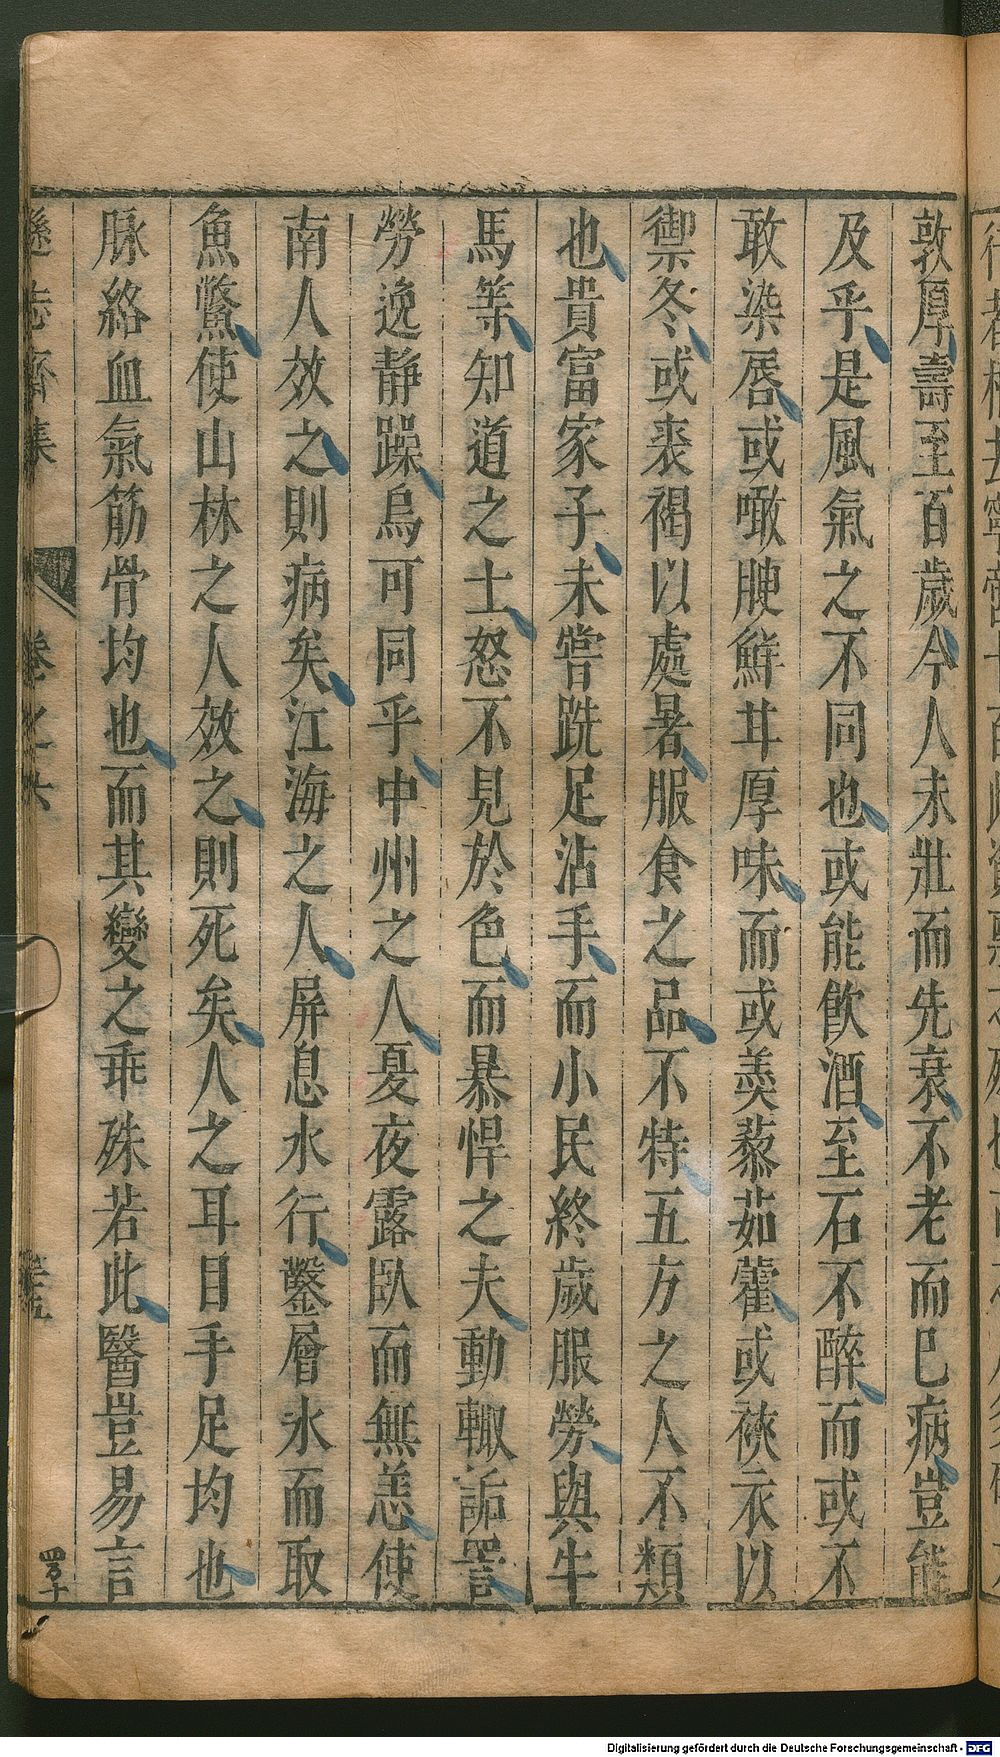 敦厚壽至百歲今人未壯而先衰不老而已病豈能
及乎是風氣之不同也或能飲酒至石不醉而或不
敢染唇或噉腴鮮甘厚味而或羹藜茹藿或裌衣以
禦冬或裘褐以處暑服食之品不特五方之人不類
也貴富家子未嘗跣足沾手而小民終歲服勞與牛
馬等知道之士怒不見於色而暴悍之夫動輒詬詈
勞逸静躁烏可同乎中州之人夏夜露卧而無恙使
南人效之則病矣江海之人屏息水行鑿層氷而取
魚鱉使山林之人效之則死矣人之耳目手足均也
脉絡血氣筋骨均也而其變之乖殊若此醫豈易言
遜志齋集 卷之六
Digitalisierung gefördert durch die Deutsche Forschungsgemeinschaft - DFG